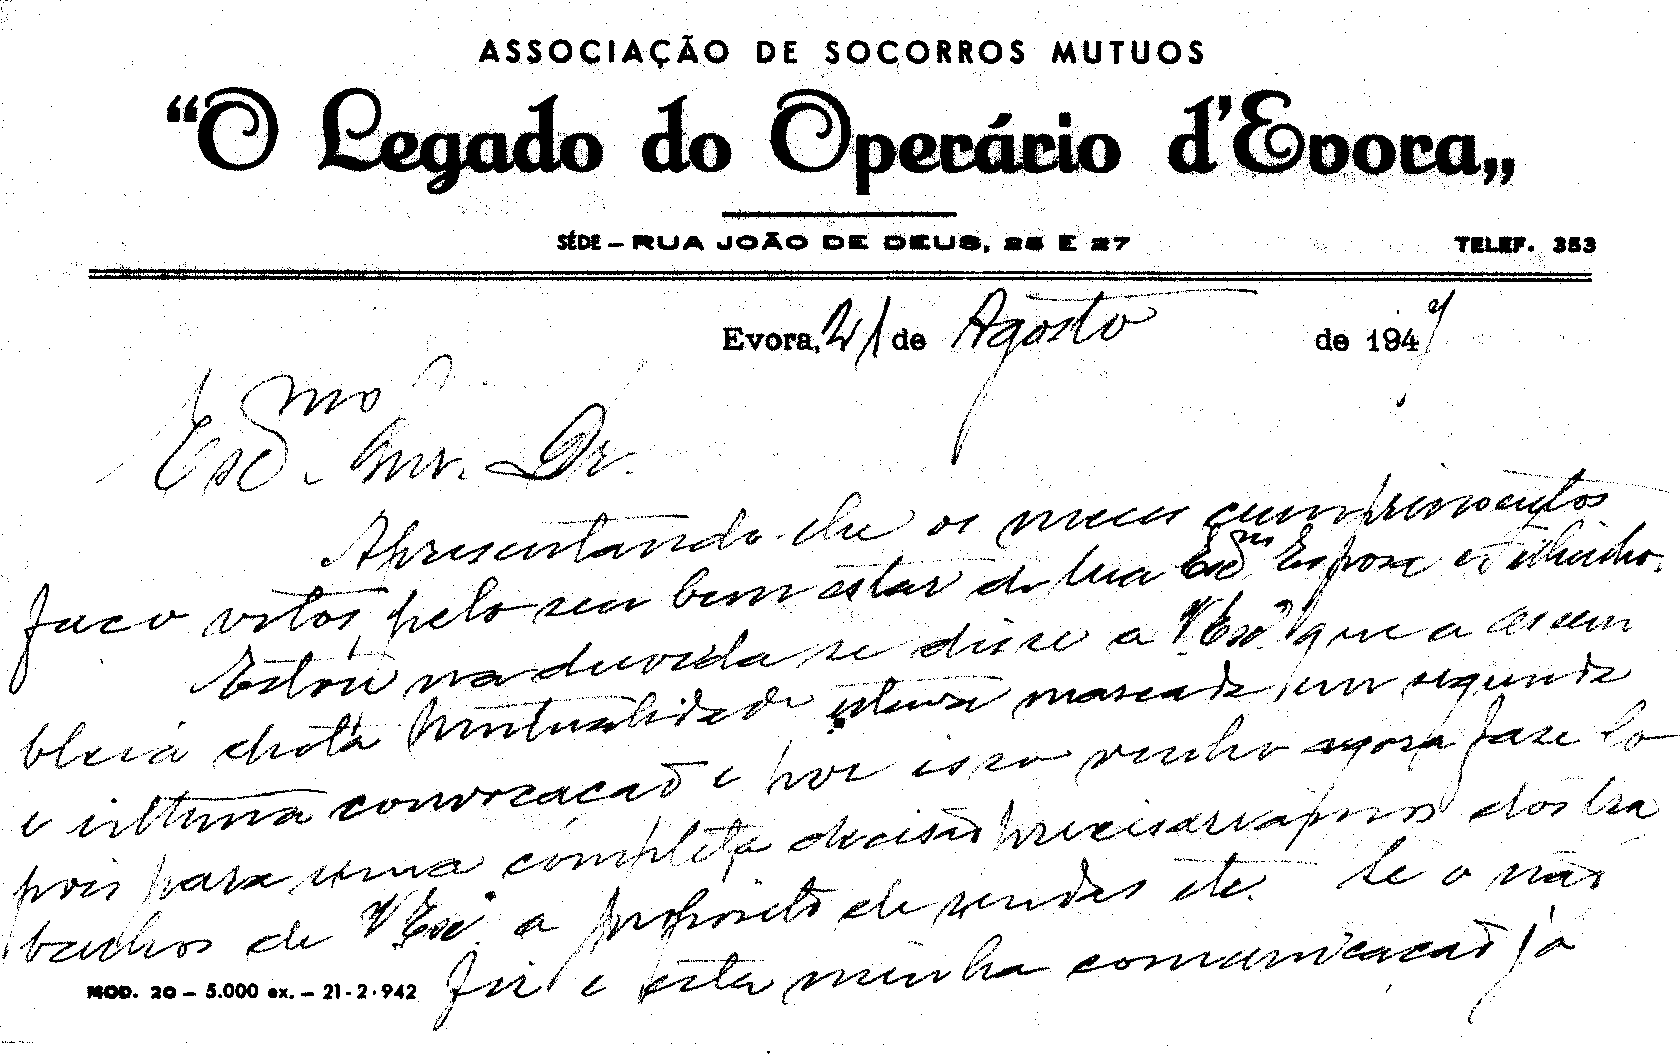 ASSOCIAÇÃO DE SOCORROS MUTUOS
"O Legado do Operário d'Evora„
SÉDE — RUA JOÃO DE DEUS, 25 E 27
TELEF. 353
Evora, 21 de Agosto de 194
Exc.mo Snr. Dr.
Apresentando-lhe os meus cumprimentos
faço votos pelo seu bem estar de sua Exc.ma Esposa e Filhinho.
Estou na duvida se disse a V. Exc.ª que a assem
bleia desta Mutualidade estava marcada em segunda
e ultima convocação e por isso venho agora faze lo
pois para uma completa decisão precisariamos dos tra
balhos de V. Exc.ª a proposito de rendas etc. Se o não
fiz e esta minha comunicação já
MOD. 20 — 5.000 ex. — 21-2-942